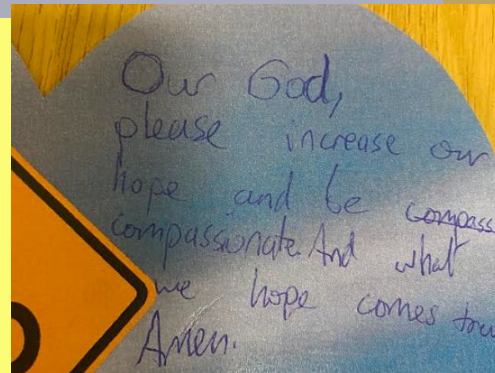 Our God,
please increase our
hope and be compass
compassionate. And what
we hope comes tru
Amen.